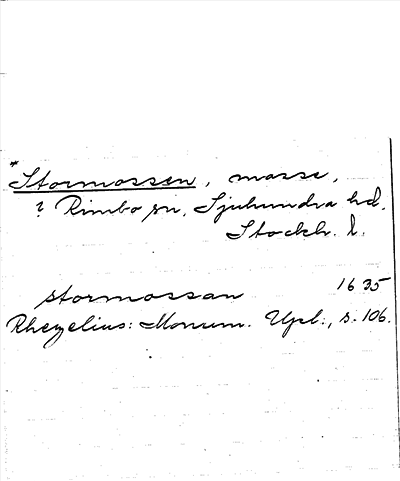 *Stormossen, mosse,
? Rimbo sn, Sjuhundra hd,
Stockh. l.
stormossan 1635
Rhezelius: Monum. Upl:, s. 106.